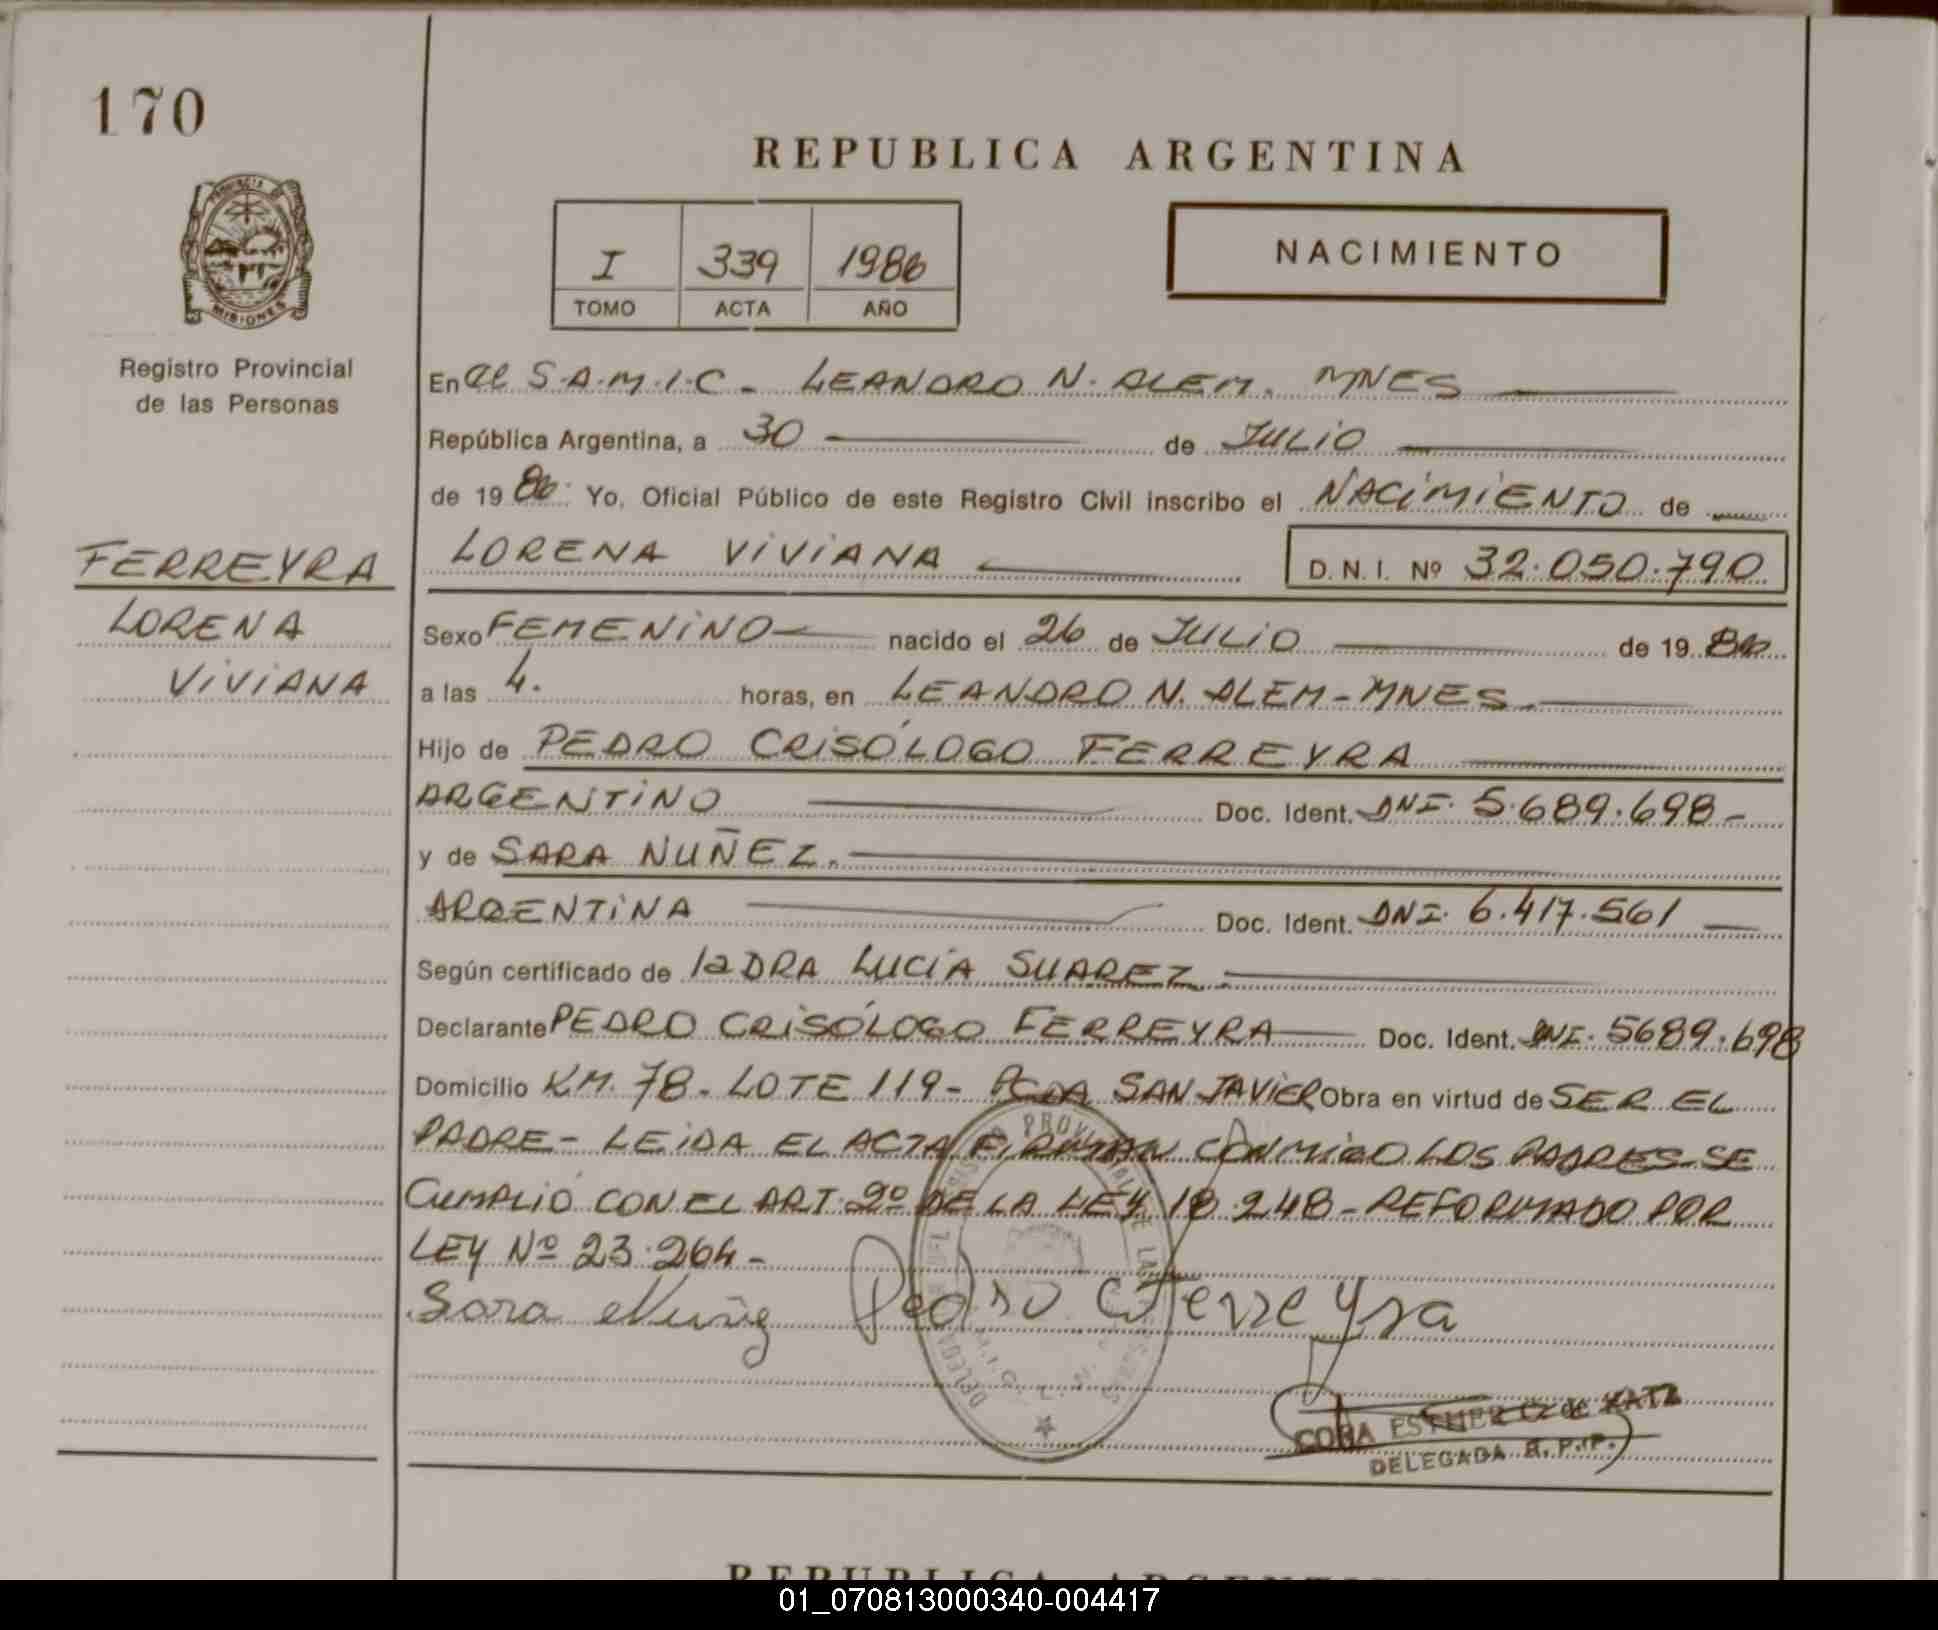 170
REPUBLICA ARGENTINA
PROVINCIA DE
MISIONES
I 339 1986
TOMO ACTA AÑO
NACIMIENTO
Registro Provincial
de las Personas
En el S.A.M.I.C - LEANDRO N. ALEM. MNES
República Argentina, a 30 de JULIO
de 1986 Yo, Oficial Público de este Registro Civil inscribo el NACIMIENTO de
FERREYRA
LORENA
VIVIANA
LORENA VIVIANA D. N. I. Nº 32.050.790
Sexo FEMENINO nacido el 26 de JULIO de 1986
a las 4. horas, en LEANDRO N. ALEM - MNES.
Hijo de PEDRO CRISÓLOGO FERREYRA
ARGENTINO Doc. Ident. DNI. 5.689.698-
y de SARA NUÑEZ.
ARGENTINA Doc. Ident. DNI. 6.417.561
Según certificado de la DRA LUCÍA SUAREZ.
Declarante PEDRO CRISÓLOGO FERREYRA Doc. Ident. DNI. 5689.698
Domicilio KM. 78 - LOTE 119 - PCDA SAN JAVIER Obra en virtud de SER EL
PADRE - LEIDA EL ACTA FIRMAN CONMIGO LOS PADRES - SE
CUMPLIÓ CON EL ART. 9º DE LA LEY 18.248 - REFORMADO POR
LEY Nº 23.264 -
Sara Nuñez Pedro C Ferreyra
CORA ESTHER de KATZ
DELEGADA R. P. P.
REPUBLICA ARGENTINA
01_070813000340-004417